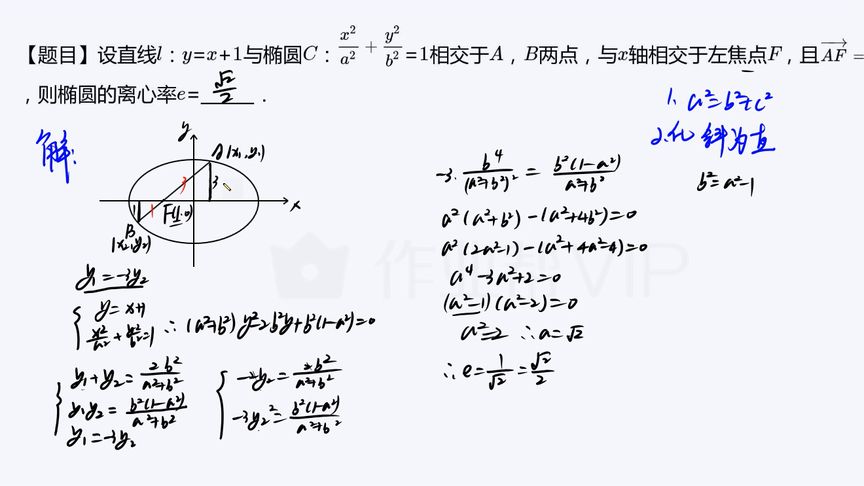 【题目】设直线l：y=x+1与椭圆C：x²/a²+y²/b²=1相交于A，B两点，与x轴相交于左焦点F，且AF=
，则椭圆的离心率e=√2/2．
1. a²=b²+c²
2.化斜为直
b²=a²-1
解：
y
A(x₁,y₁)
3
3
x
1
1
F(1,0)
B
(x₂,y₂)
y₁=-3y₂
{y=x+1
x²/a²+y²/b²=1 ∴(a²+b²)y²-2b²y+b²(1-a²)=0
{y₁+y₂=2b²/(a²+b²)
y₁y₂=b²(1-a²)/(a²+b²)
y₁=-3y₂
{-2y₂=2b²/(a²+b²)
-3y₂²=b²(1-a²)/(a²+b²)
-3·b⁴/(a²+b²)²=b²(1-a²)/(a²+b²)
a²(a²+b²)-(a²+4b²)=0
a²(2a²-1)-(a²+4a²-4)=0
a⁴-3a²+2=0
(a²-1)(a²-2)=0
a²=2 ∴a=√2
∴e=1/√2=√2/2
作业帮VIP